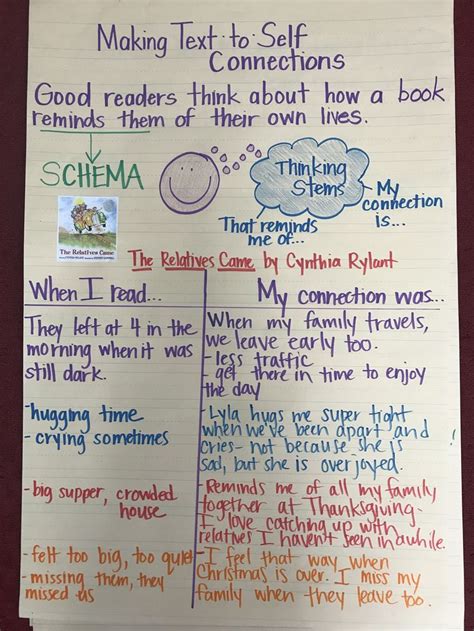 Making Text-to-Self
Connections
Good readers think about how a book
reminds them of their own lives.
SCHEMA
Thinking
Stems
My
connection
is...
That reminds
me of...
The Relatives Came
The Relatives Came by Cynthia Rylant
When I read...
They left at 4 in the
morning when it was
still dark.
-hugging time
- crying sometimes
-big supper, crowded
house
-felt too big, too quiet
- missing them, they
missed us
My connection was...
When my family travels,
we leave early too.
- less traffic
- get there in time to enjoy
the day
- Lyla hugs me super tight
when we've been apart and
cries- not because she is
sad, but she is overjoyed.
-Reminds me of all my family
together at Thanksgiving.
I love catching up with
relatives I haven't seen in awhile.
-I feel that way when
Christmas is over. I miss my
family when they leave too.